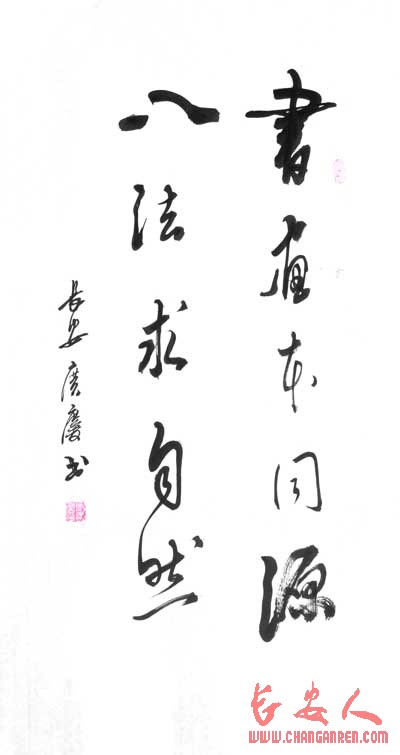 書畫本同源
八法求自然
長安 廣慶书
长安人
WWW.CHANGANREN.COM